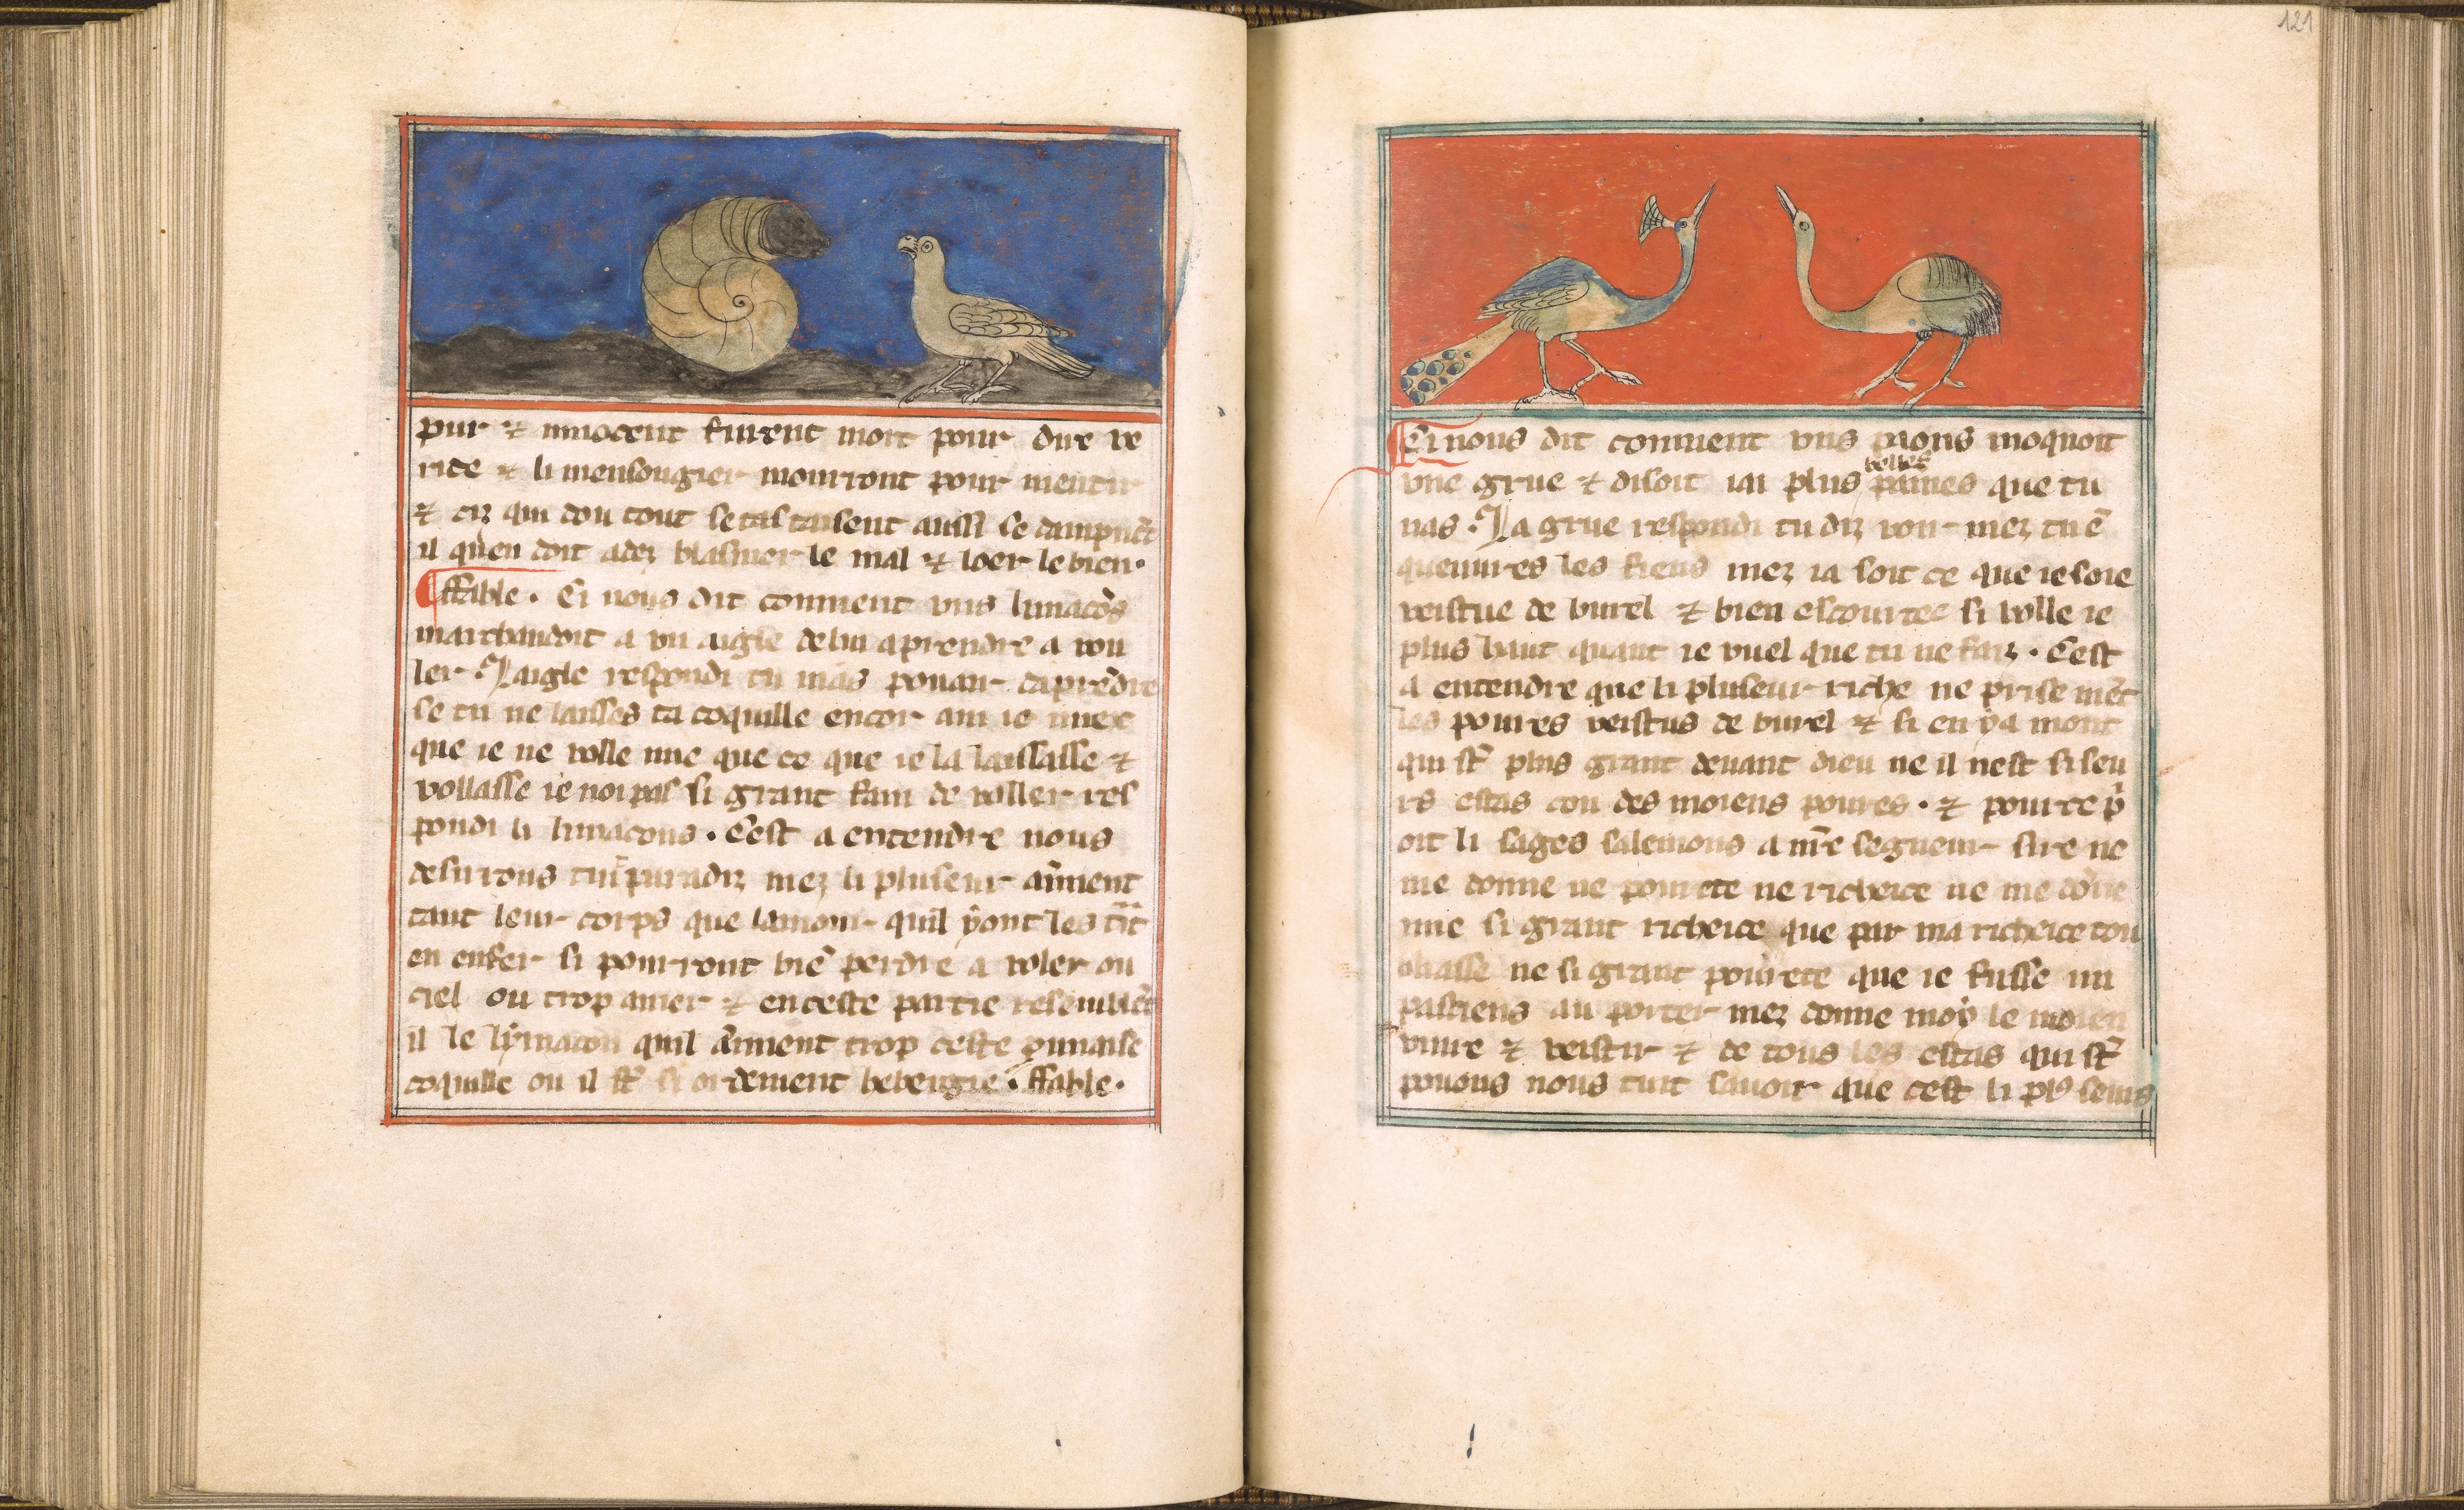 pur ⁊ innocent furent mort pour dire ve
rite ⁊ li mensougier mourront pour mentir
⁊ ciz qui dou tout se tas taisent aussi se dampnēt
il quen doit adez blasmer le mal ⁊ loer le bien.
ffable. Ci nous dit comment uns limacōs
marchandoit a un aigle de lui aprendre a vou
ler. Laigle respondi tu nias pouair daprēdre
se tu ne laisses ta coquille encor aim ie miex
que ie ne volle mie que ce que ie la laissasse ⁊
vollasse ie noi pas si grant fain de voller res
pondi li limacons. Cest a entendre nous
desirons tuit paradiz mez li pluseur aiment
tant leur corps que lamour quil y ont les tīt
en enfer si pourront biē perdre a voler ou
ciel ou trop amer ⁊ en ceste partie resemblēt
il le lymacon quil aiment trop ceste punaise
coquille ou il st̄ si ordement hebergie. ffable.
121
Ci nous dit comment uns paons moquoit
belles
une grue ⁊ disoit iai plus pames que tu
nas. La grue respondi tu diz voir mez tu ē
queuures les fiens mez ia soit ce que ie soie
vestue de burel ⁊ bien escourtee si volle ie
plus haut quant ie vuel que tu ne faiz. Cest
a entendre que li pluseur riche ne prise mēt
les poures vestus de burel ⁊ si en y a mont
qui st̄ plus grant deuant dieu ne il nest si seu
rs estas con des moiens poures. ⁊ pour ce p̄
oit li sages salemons a nr̄e segneur sire ne
me donne ne pourete ne richeice ne me dōne
mie si grant richeice que par ma richeice tou
bliasse ne si grant pourete que ie fusse im
paciens au porter mez donne moy le moien
viure ⁊ vestir ⁊ de tous les estas qui st̄
pouons nous tuit sauoir que cest li pl9 seurs